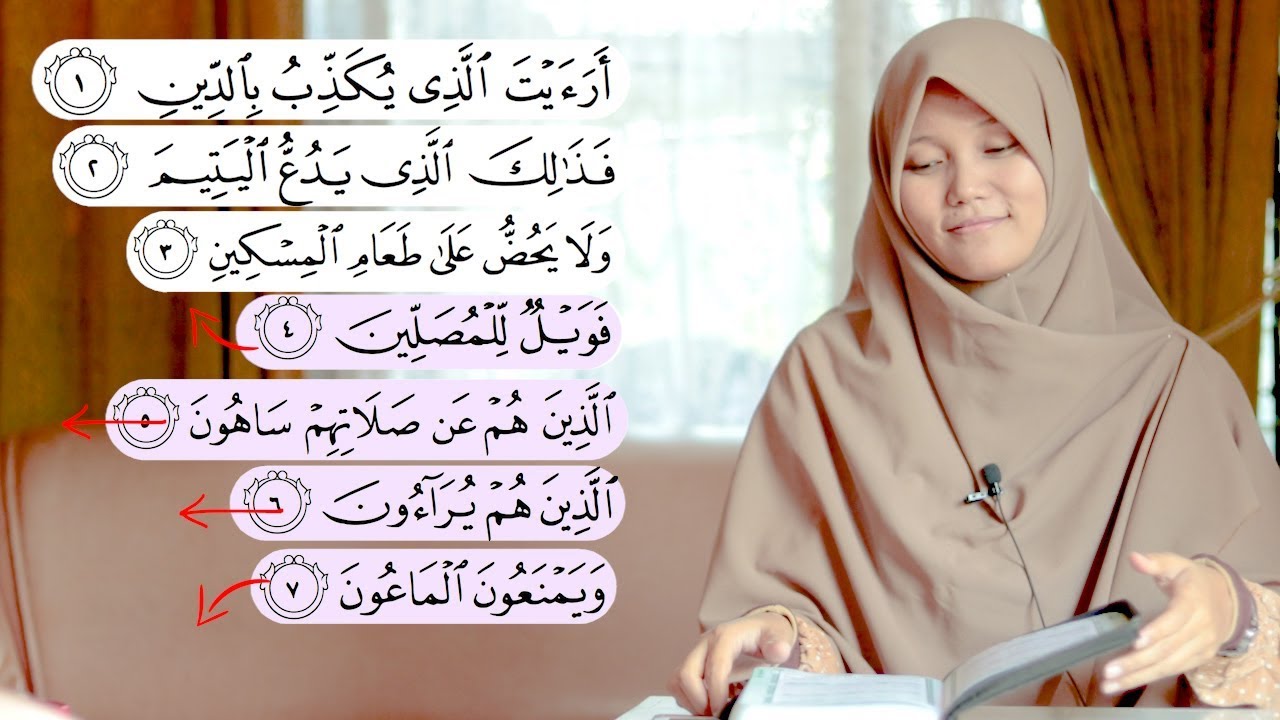 أَرَءَيْتَ ٱلَّذِى يُكَذِّبُ بِٱلدِّينِ ١
فَذَٰلِكَ ٱلَّذِى يَدُعُّ ٱلْيَتِيمَ ٢
وَلَا يَحُضُّ عَلَىٰ طَعَامِ ٱلْمِسْكِينِ ٣
فَوَيْلٌ لِّلْمُصَلِّينَ ٤
ٱلَّذِينَ هُمْ عَن صَلَاتِهِمْ سَاهُونَ ٥
ٱلَّذِينَ هُمْ يُرَآءُونَ ٦
وَيَمْنَعُونَ ٱلْمَاعُونَ ٧